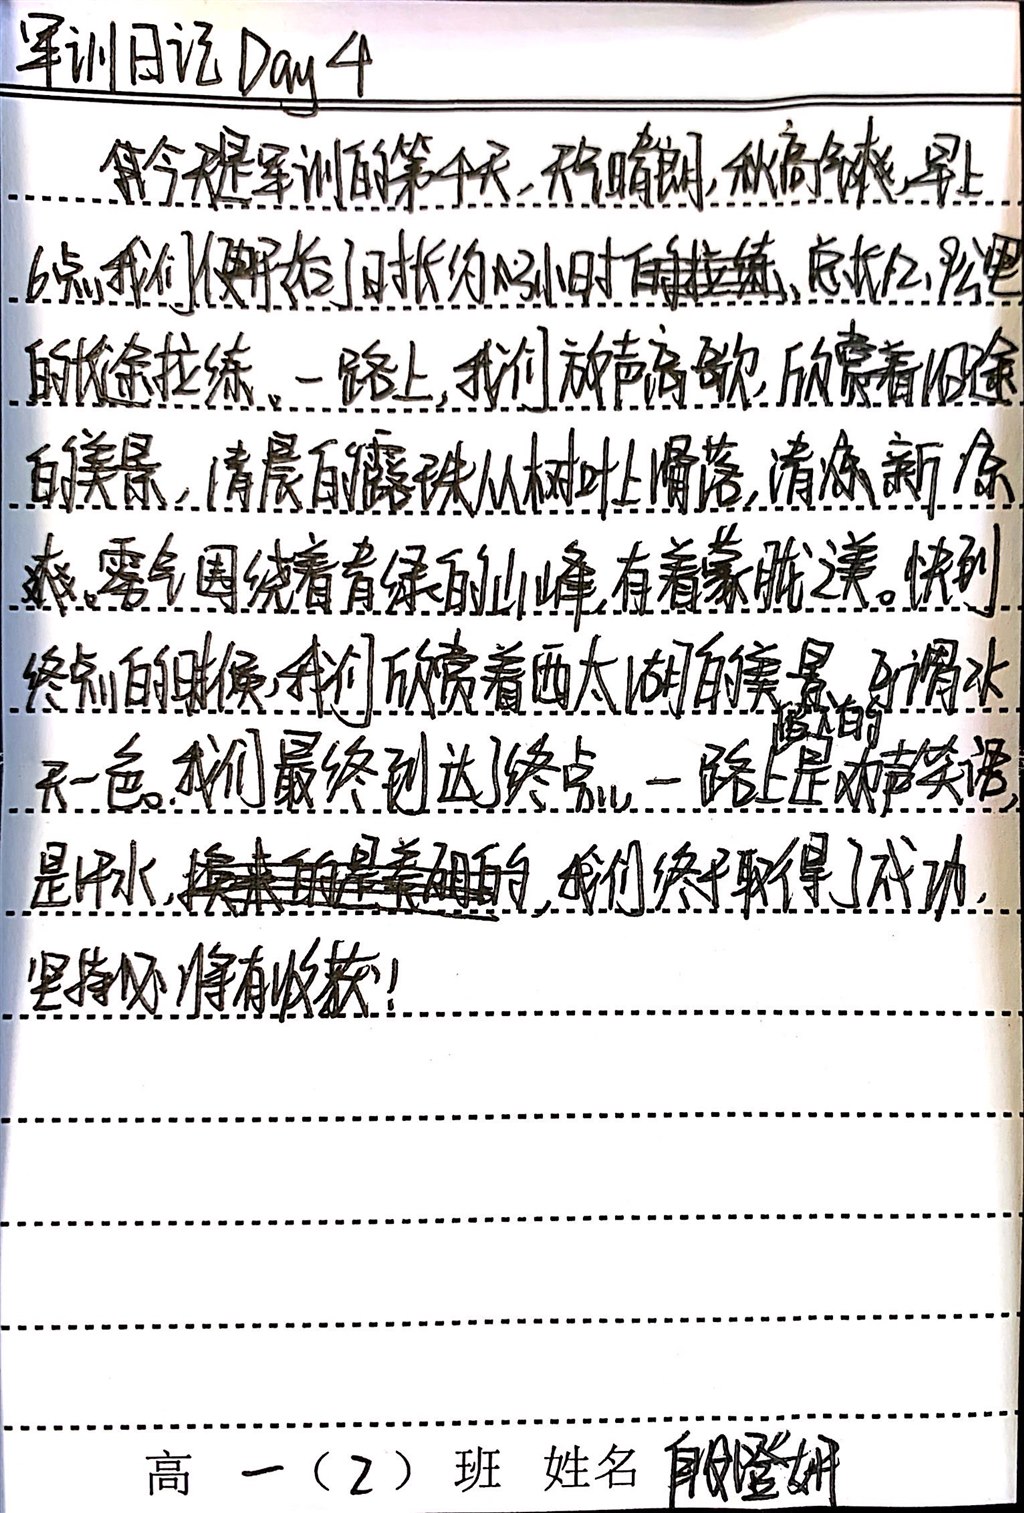 军训日记Day 4
今天是军训的第四天,天气晴朗,秋高气爽,早上
6点,我们便开始了时长约3小时的拉练、总长12.9公里
的长途拉练。一路上,我们放声高歌,欣赏着沿途
的美景,清晨的露珠从树叶上滑落,清凉新凉
爽。雾气围绕着青绿的山峰,有着蒙胧之美。快到
终点的时候,我们欣赏着西太湖的美景,可谓水
天一色。我们最终到达了终点,一路上是
的欢声笑语,
是汗水,我们终于取得了成功,
坚持怀将有收获!
高一(2)班 姓名 殷澄妍